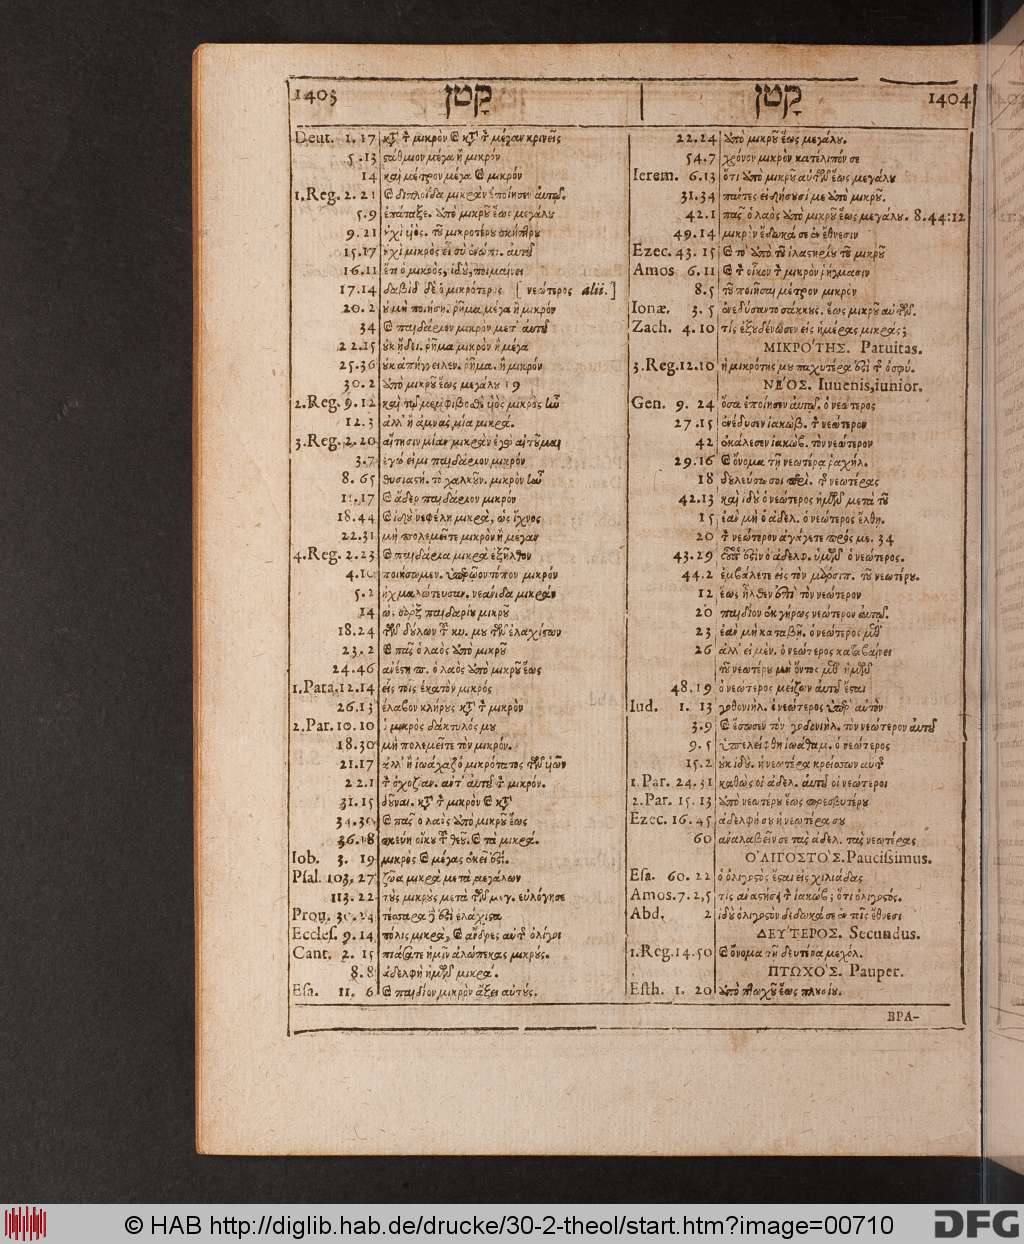 1403 קָטֹן
Deut. 1. 17 μικρὸν μέγαν κρινεῖς
5 . 13 στάθμιον μέγα ἢ μικρόν
14 καὶ μέτρον μέγα μικρόν
1. Reg. 2. 21 διπλοΐδα μικρὰν ἐποίησεν αὐτῷ.
5. 9 ἐπάταξε. ὑπὸ μικροῦ ἕως μεγάλου
9. 21 οὐχὶ τοῦ μικροτέρου σκήπτρου
15. 17 οὐχὶ μικρὸς εἶ σὺ ἐνώπι. αὐτοῦ
16. 11 ἔτι ὁ μικρὸς, ἰδοὺ, ποιμαίνει
17. 14 δαβὶδ δὲ ὁ μικρότερος [ νεώτερος alii. ]
20. 2 οὐ μὴ ποιήσῃ. ῥῆμα μέγα ἢ μικρόν
34 παιδάριον μικρὸν μετ' αὐτοῦ
22. 15 οὐκ ᾔδει. ῥῆμα μικρὸν ἢ μέγα
25. 36 οὐκ ἀπήγγειλεν. ῥῆμα. ἢ μικρόν
30. 2 ὑπὸ μικροῦ ἕως μεγάλου 19
2. Reg. 9. 12 καὶ τῷ μεμφιβοσθὲ υἱὸς μικρὸς
12. 3 ἀλλ' ἢ ἀμνὰς μία μικρά.
3. Reg. 2. 20 αἴτησιν μίαν μικρὰν ἐγὼ αἰτοῦμαι
3. 7 ἐγώ εἰμι παιδάριον μικρόν
8. 65 θυσιαστή. τὸ χαλκοῦν. μικρὸν
11. 17 ἄδερ παιδάριον μικρόν
18. 44 ἰδοὺ νεφέλη μικρὰ, ὡς ἴχνος
22. 31 μὴ πολεμεῖτε μικρὸν ἢ μέγαν
4. Reg. 2. 23 παιδάρια μικρὰ ἐξῆλθον
4. 10 ποιήσωμεν. ὑπερῷον τόπον μικρόν
5. 2 ᾐχμαλώτευσαν. νεανίδα μικράν
14 ὡς σὰρξ παιδαρίου μικροῦ
18. 24 τῶν δούλων κυ. μου τῶν ἐλαχίστων
23. 2 πᾶς ὁ λαὸς ὑπὸ μικροῦ
24. 46 ἀνέστη π. ὁ λαὸς ὑπὸ μικροῦ ἕως
1. Para. 12. 14 εἷς τοῖς ἑκατὸν μικρός
26. 13 ἔλαβον κλήρους μικρὸν
2. Par. 10. 10 ὁ μικρὸς δάκτυλός μου
18. 30 μὴ πολεμεῖτε τὸν μικρόν.
21. 17 ἀλλ' ἢ ἰωάχαζ ὁ μικρότατος τῶν υἱῶν
22. 1 ὀχοζίαν. ἀντ' αὐτοῦ μικρόν.
31. 15 δοῦναι. μικρὸν
34. 30 πᾶς ὁ λαὸς ὑπὸ μικροῦ ἕως
36. 18 σκεύη οἴκου θεοῦ. τὰ μικρά.
Iob. 3. 19 μικρὸς μέγας ἐκεῖ ἐστί.
Psal. 103. 27 ζῶα μικρὰ μετὰ μεγάλων
113. 22 τοὺς μικροὺς μετὰ τῶν μεγ. εὐλόγησε
Prou. 30. 24 τέσσαρα ἐστὶ ἐλάχιστα
Eccles. 9. 14 πόλις μικρὰ, ἄνδρες ὀλίγοι
Cant. 2. 15 πιάσατε ἡμῖν ἀλώπεκας μικρούς.
8. 8 ἀδελφὴ ἡμῶν μικρά.
Esa. 11. 6 παιδίον μικρὸν ἄξει αὐτούς.
קָטֹן 1404
22. 24 ὑπὸ μικροῦ ἕως μεγάλου.
54. 7 χρόνον μικρὸν κατέλιπόν σε
Ierem. 6. 13 ὅτι ὑπὸ μικροῦ αὐτῶν ἕως μεγάλου
31. 34 πάντες εἰδήσουσί με ὑπὸ μικροῦ.
42. 1 πᾶς ὁ λαὸς ὑπὸ μικροῦ ἕως μεγάλου. 8. 44:12
49. 14 μικρὸν ἔδωκά σε ἐν ἔθνεσιν
Ezec. 43. 15 τὸ ὑπὸ τοῦ ἱλαστηρίου τοῦ μικροῦ
Amos 6. 11 οἶκον μικρὸν ῥήγμασιν
8. 5 τοῦ ποιῆσαι μέτρον μικρὸν
Ionæ. 3. 5 ἐνεδύσαντο σάκκους. ἕως μικροῦ αὐτῶν.
Zach. 4. 10 τίς ἐξουδένωσεν εἰς ἡμέρας μικράς;
ΜΙΚΡΟ'ΤΗΣ. Paruitas.
3. Reg. 12. 10 ἡ μικρότης μου παχυτέρα ἐστὶ ὀσφύ.
ΝΕ'ΟΣ. Iuuenis, iunior.
Gen. 9. 24 ὅσα ἐποίησεν αὐτῷ. ὁ νεώτερος
27. 15 ἐνέδυσεν ἰακὼβ. νεώτερον
42 ἐκάλεσεν ἰακώβ. τὸν νεώτερον
29. 16 ὄνομα τῇ νεωτέρᾳ ῥαχήλ.
18 δουλεύσω σοι περὶ. νεωτέρας
42. 13 καὶ ἰδοὺ ὁ νεώτερος ἡμῶν μετὰ τοῦ
15 ἐὰν μὴ ὁ ἀδελ. ὁ νεώτερος ἔλθῃ.
20 νεώτερον ἀγάγετε πρός με. 34
43. 29 ἐστὶν ὁ ἀδελφ. ὑμῶν ὁ νεώτερος.
44. 2 ἐμβάλετε εἰς τὸν μάρσιπ. τοῦ νεωτέρου.
12 ἕως ἦλθεν ἐπὶ τὸν νεώτερον
20 παιδίον ἐκ γήρως νεώτερον αὐτῷ.
23 ἐὰν μὴ καταβῇ. ὁ νεώτερος μεθ'
26 ἀλλ' εἰ μὲν. ὁ νεώτερος καταβαίνει
τοῦ νεωτέρου μὴ ὄντος μεθ' ἡμῶν
48. 19 ὁ νεώτερος μείζων αὐτοῦ ἔσται
Iud. 1. 13 γοθονιὴλ. ὁ νεώτερος ὑπὲρ αὐτὸν
3. 9 ἔσωσεν τὸν γοθονιὴλ. τὸν νεώτερον αὐτοῦ
9. 5 ὑπελείφθη ἰωάθαμ. ὁ νεώτερος
15. 2 οὐκ ἰδοὺ. ἡ νεωτέρα κρείσσων
1. Par. 24. 31 καθὼς οἱ ἀδελ. αὐτοῦ οἱ νεώτεροι
2. Par. 15. 13 ὑπὸ νεωτέρου ἕως πρεσβυτέρου
Ezec. 16. 45 ἀδελφή σου ἡ νεωτέρα σου
60 ἀναλαβεῖν σε τὰς ἀδελ. τὰς νεωτέρας
Ο'ΛΙΓΟΣΤΟ'Σ. Paucissimus.
Esa. 60. 22 ὁ ὀλιγοστὸς ἔσται εἰς χιλιάδας
Amos. 7. 2, 5 τίς ἀναστήσῃ ἰακώβ; ὅτι ὀλιγοστός.
Abd. 2 ἰδοὺ ὀλιγοστὸν δέδωκά σε ἐν τοῖς ἔθνεσι
ΔΕΥ'ΤΕΡΟΣ. Secundus.
1. Reg. 14. 50 ὄνομα τῇ δευτέρᾳ μεχόλ.
ΠΤΩΧΟ'Σ. Pauper.
Esth. 1. 20 ὑπὸ πτωχοῦ ἕως πλουσίου.
ΒΡΑ-
© HAB http://diglib.hab.de/drucke/30-2-theol/start.htm?image=00710
DFG